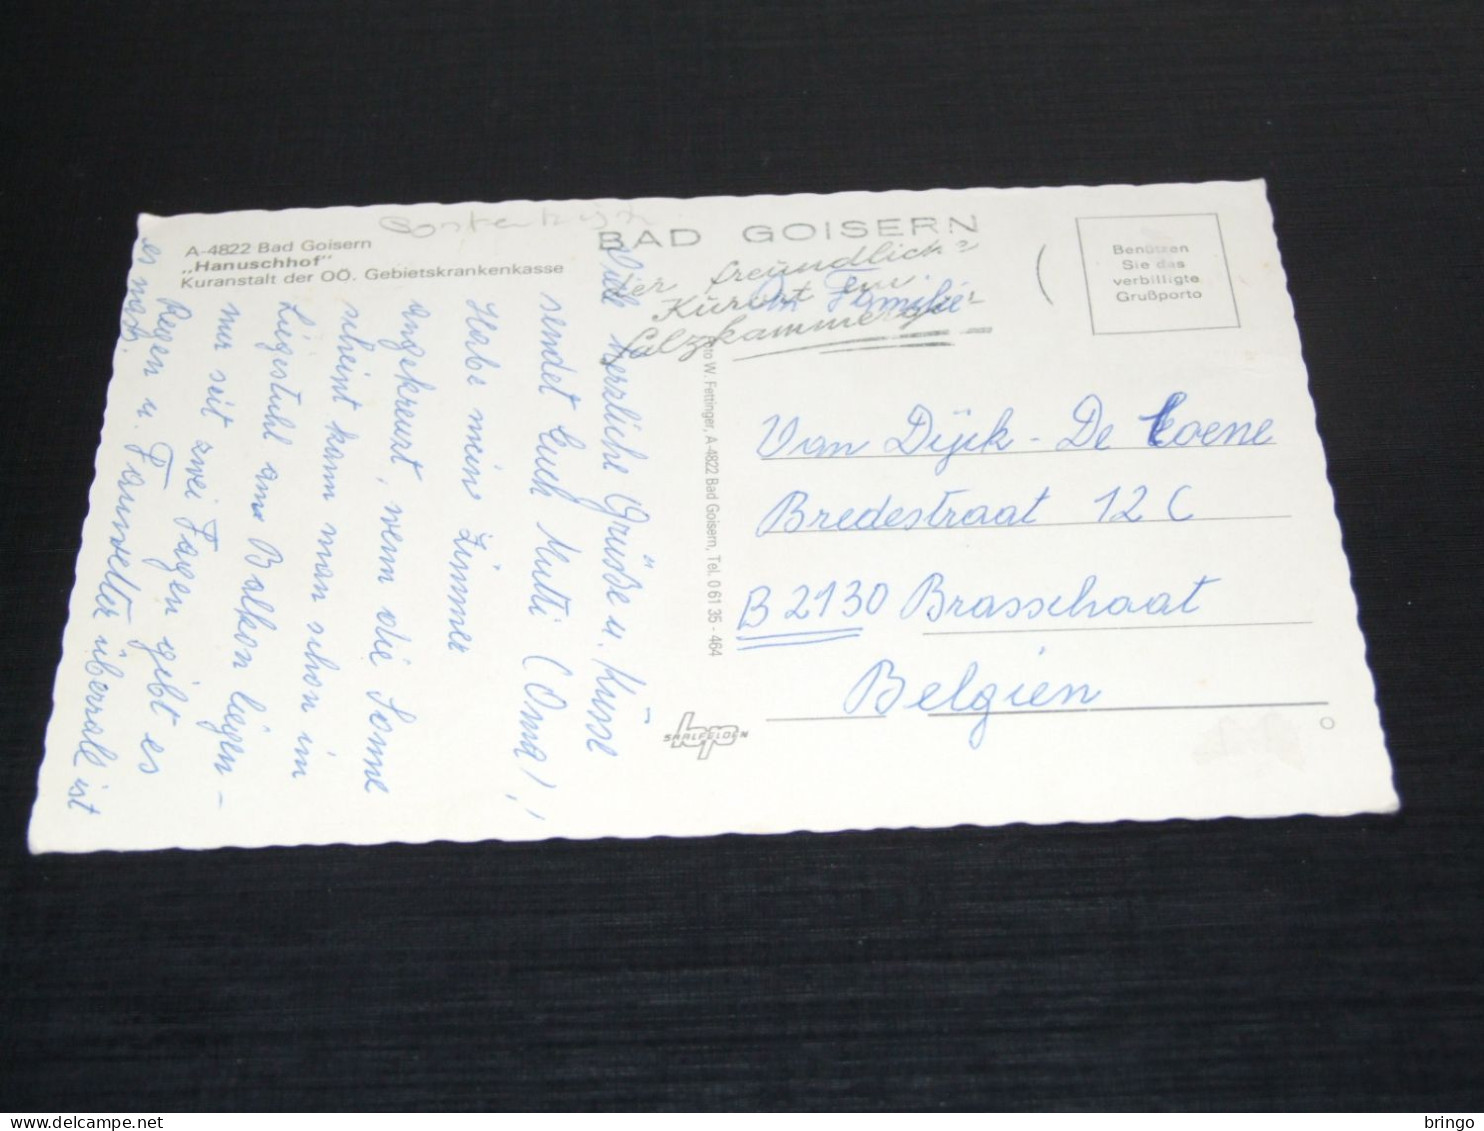 A-4822 Bad Goisern
„Hanuschhof"
Kuranstalt der OÖ. Gebietskrankenkasse
BAD GOISERN
der freundliche
Kurort im
Salzkammergut
Benützen
Sie das
verbilligte
Grußporto
Viele herzliche Grüße u. Küsse
sendet Euch Mutti (Oma)!
Habe mein Zimmer
angekreuzt, wenn die Sonne
scheint kann man schon im
Liegestuhl am Balkon liegen -
nur seit zwei Tagen gibt es
Regen u. Tauwetter überall ist
es nass.
Foto W. Fettinger, A-4822 Bad Goisern, Tel. 0 61 35 - 464
An Familie
Van Dijck - De Coene
Bredestraat 12 C
B 2130 Brasschaat
Belgien
hp
SAALFELDEN
bringo
www.delcampe.net